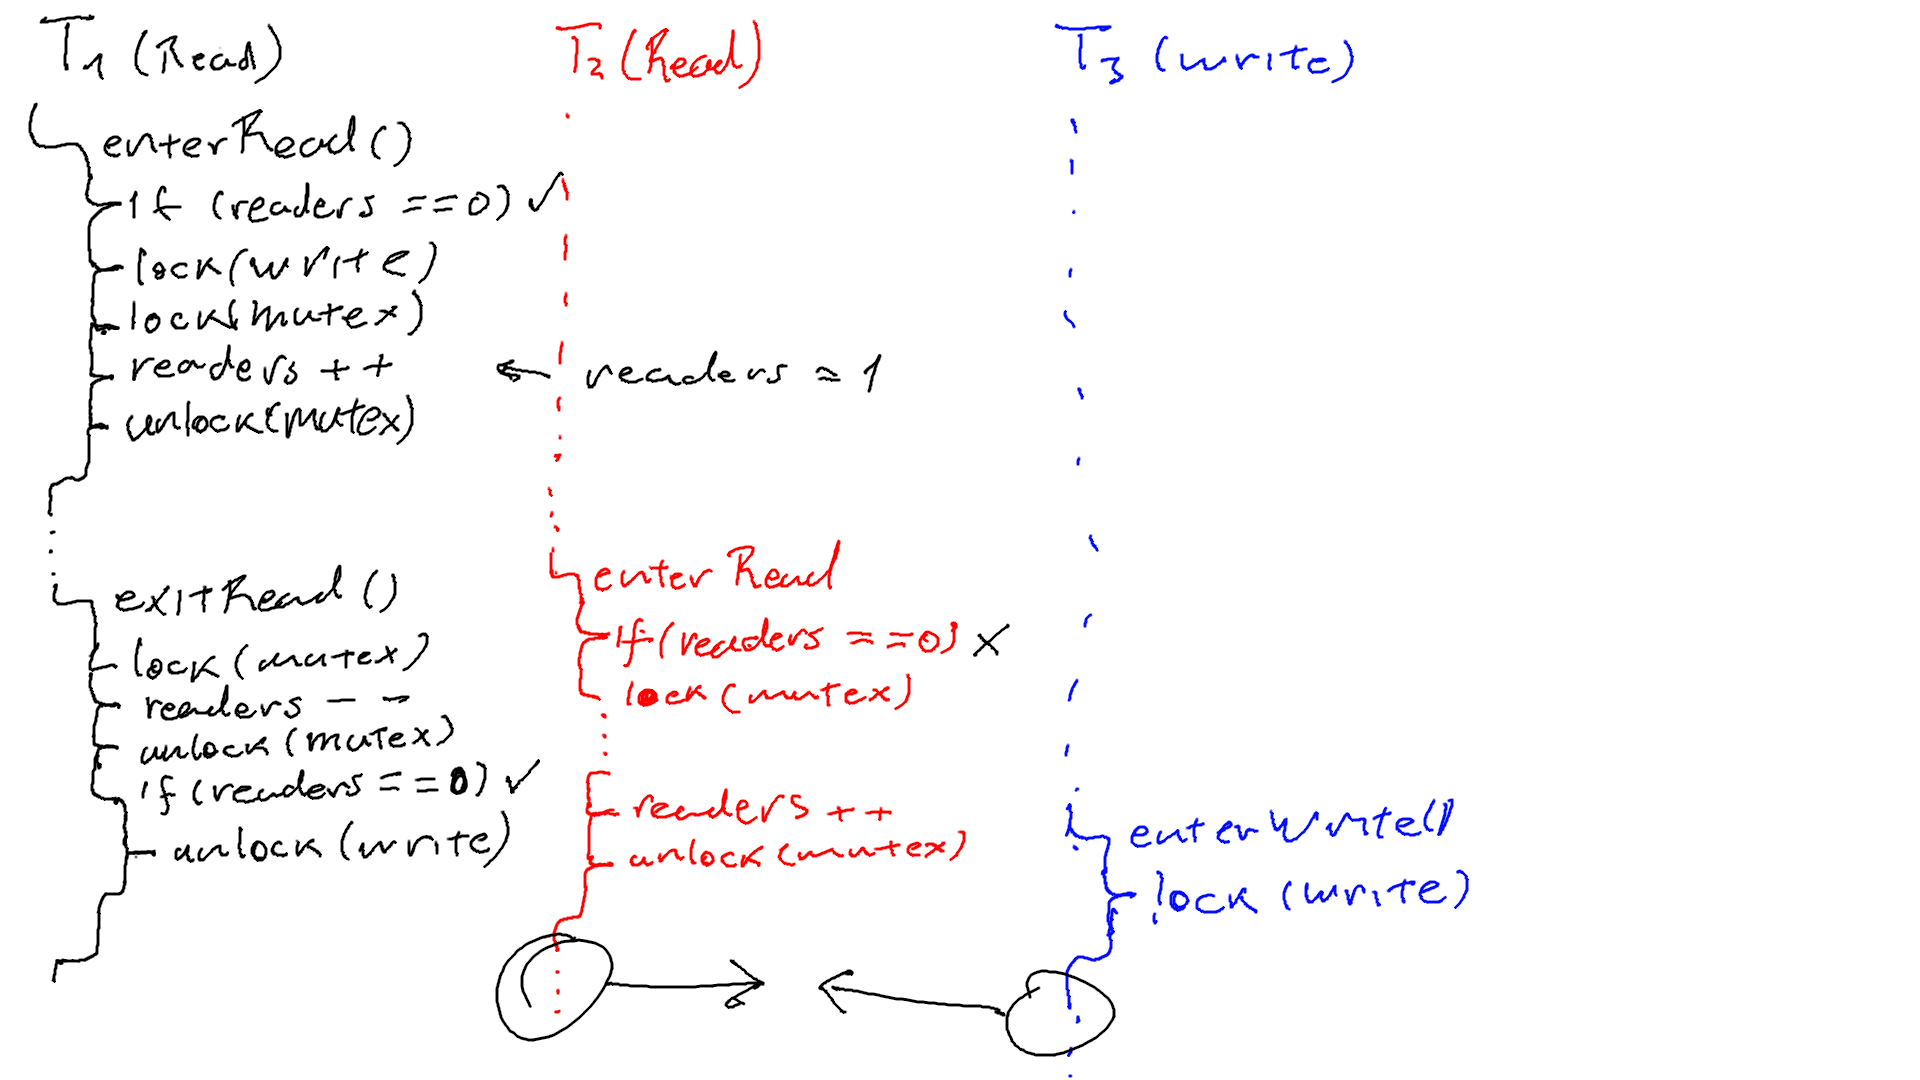 T1 (Read)
enterRead ()
if (readers ==0) ✓
lock(write)
lock(mutex)
readers ++
unlock(mutex)
exitRead ()
lock (mutex)
readers --
unlock (mutex)
if (readers ==0) ✓
unlock (write)
T2 (Read)
← readers = 1
enter Read
if (readers ==0) ✗
lock (mutex)
readers ++
unlock (mutex)
T3 (write)
enterWrite()
lock (write)